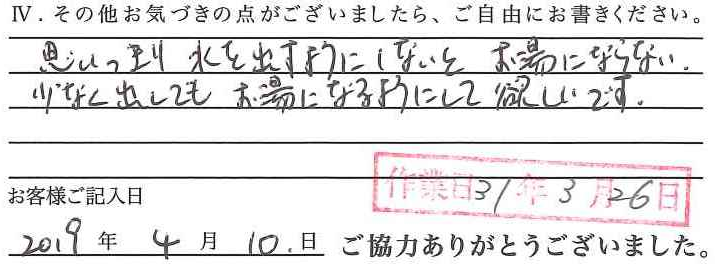 Ⅳ．その他お気づきの点がございましたら、ご自由にお書きください。
思いっきり 水を出すようにしないと お湯にならない.
少なく出しても お湯になるようにして欲しいです.
作業日31年3月26日
お客様ご記入日
2019 年 4 月 10. 日 ご協力ありがとうございました。